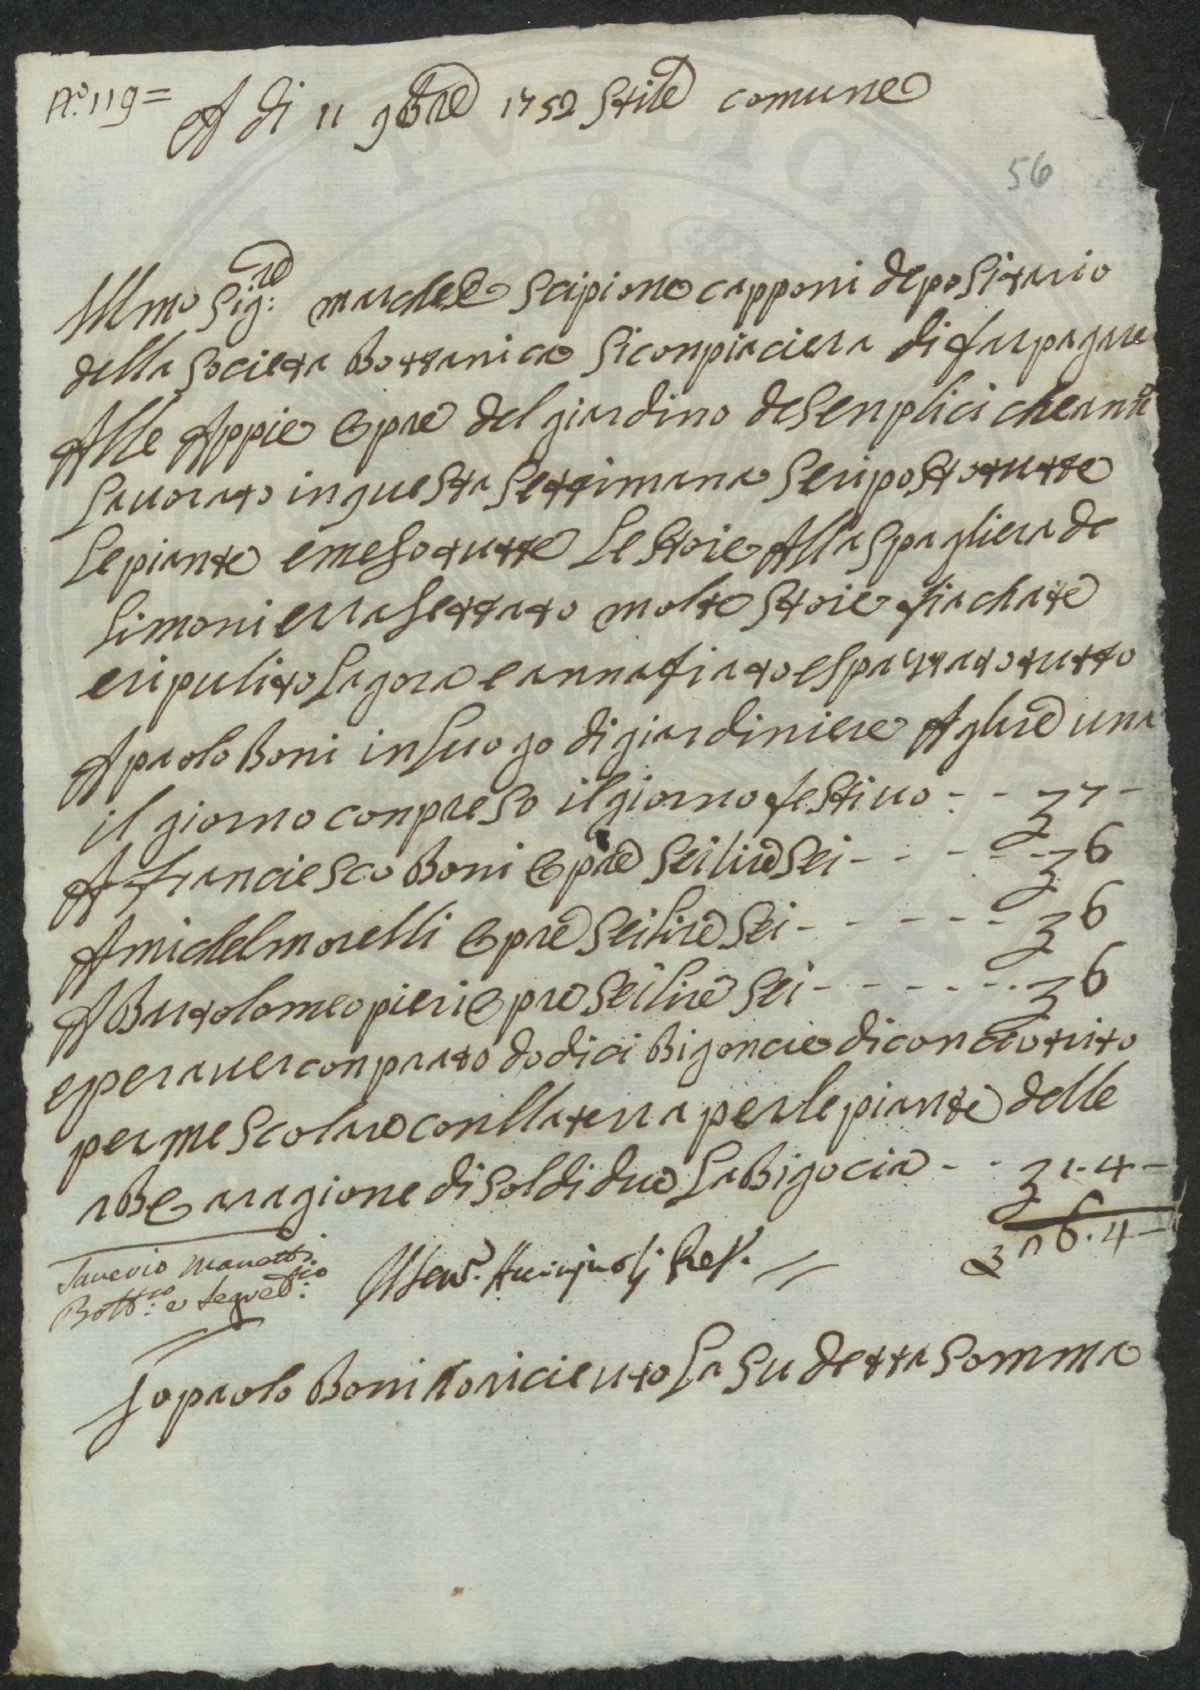 N.o 119 =
A di 11 9bre 1752 Stile comune
56
Illmo Sig:re marchese Scipione capponi depositario
della Societa Bottanica Siconpiaciera di far pagare
Alle Appie Opre del giardino de Senplici che anno
Lavorato in questa Settimana Se riposto tutte
Le piante e meso tutte Le Stoie Alla Spagliera de
Limoni e rasettato molte Stoie fiachate
e ripulito La gora e annafiato e spazzato tutto
A paolo Boni in Luogo di giardiniere A lire una
il giorno conpreso il giorno festivo - - - 7 -
A franciesco Boni Opre Sei lire Sei - - - - - 6
A michel morelli Opre Sei lire Sei - - - - - 6
A Bartolomeo pieri Opre Sei lire Sei - - - - - - 6
e per aver conprato dodici Bigoncie di concio trito
per mescolare conlla terra per le piante delle
a ragione di Soldi due La Bigocia - - - 1 . 4 -
26 . 4 -
Saverio Manetti
Bott.co e Segret.rio
Io paolo Boni o riceuto La Su detta Somma